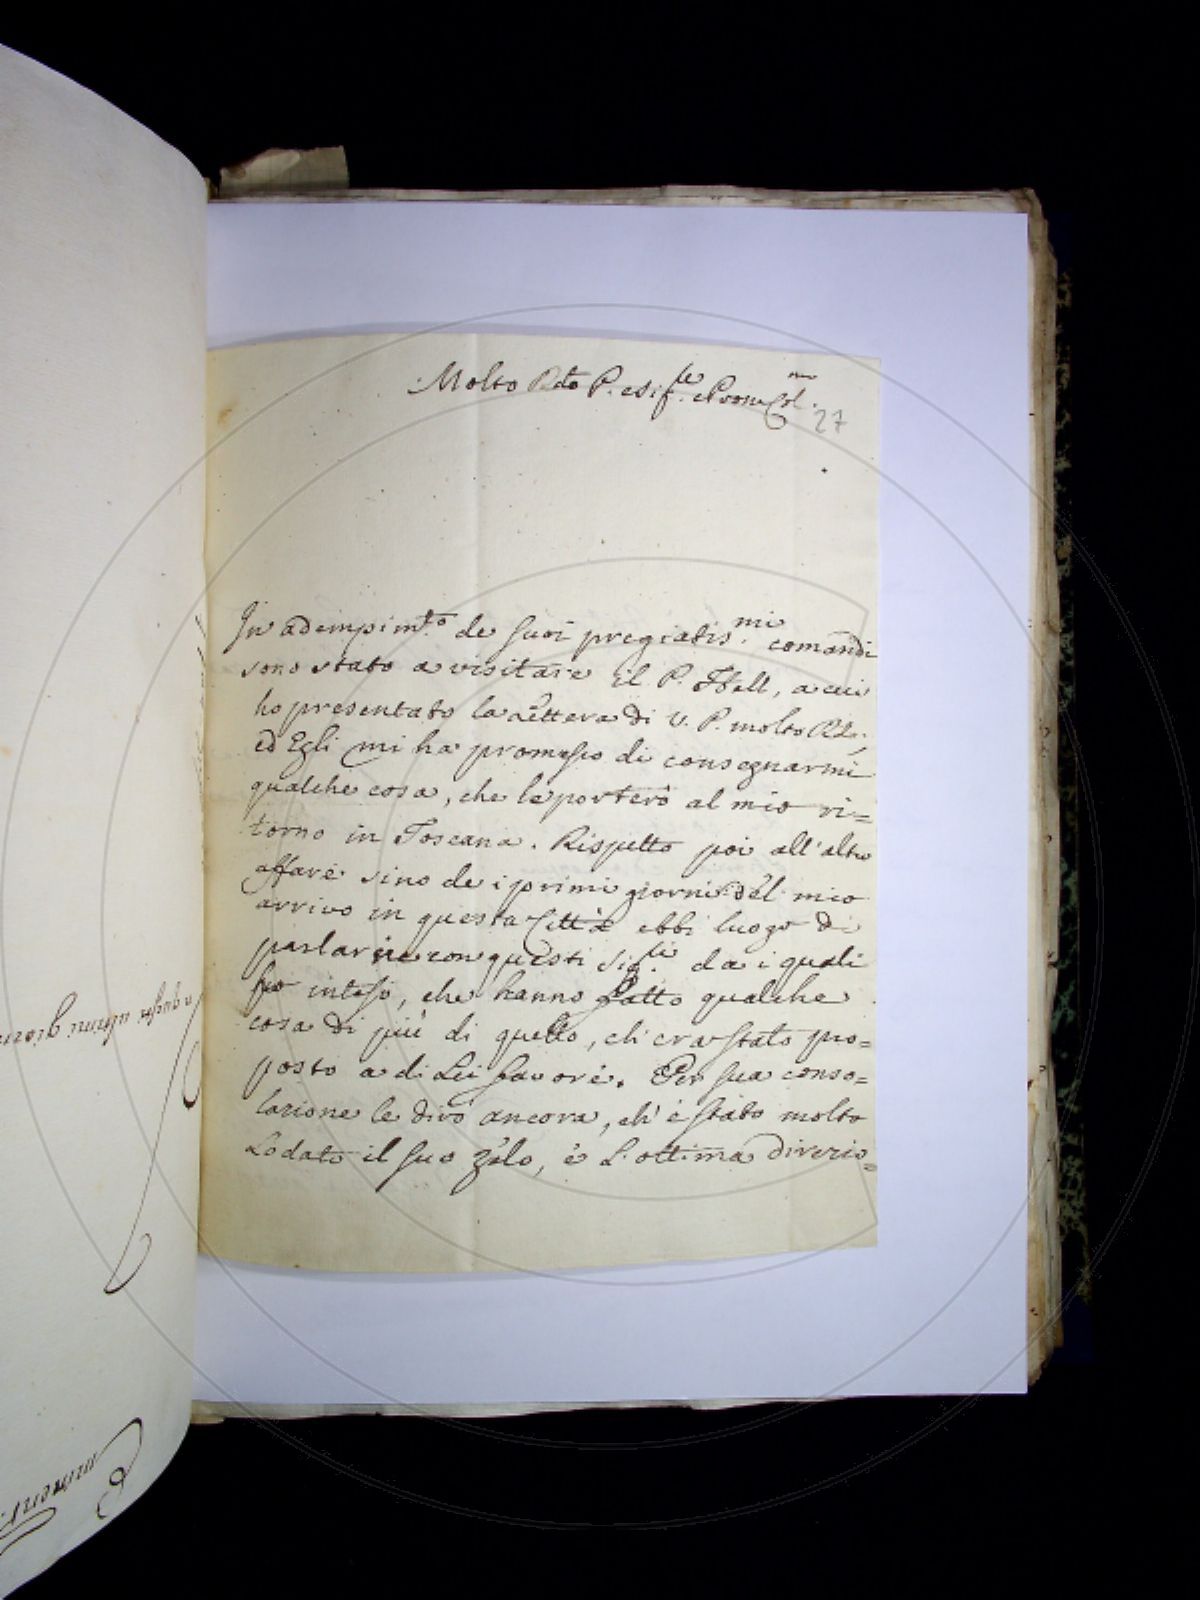 Molto Rdo P. e Sig.re e Prone Col.mo
27
In adempim.to de suoi pregiatis.mi comandi
sono stato a visitare il P. Hell, a cui
ho presentato la lettera di V. P. molto Rda.,
ed Egli mi ha promesso di consegnarmi
qualche cosa, che le porterò al mio ri=
torno in Toscana. Rispetto poi all'altro
affare sino de i primi giorni del mio
arrivo in questa Città ebbi luogo di
parlarne con questi Sig.ri da i quali
fu inteso, che hanno fatto qualche
cosa di più di quello, ch'era stato pro=
posto a di Lei favore. Per sua conso=
lazione le dirò ancora, ch'è stato molto
Lodato il suo zelo, è L'ottima direzio=
questi ultimi giorni